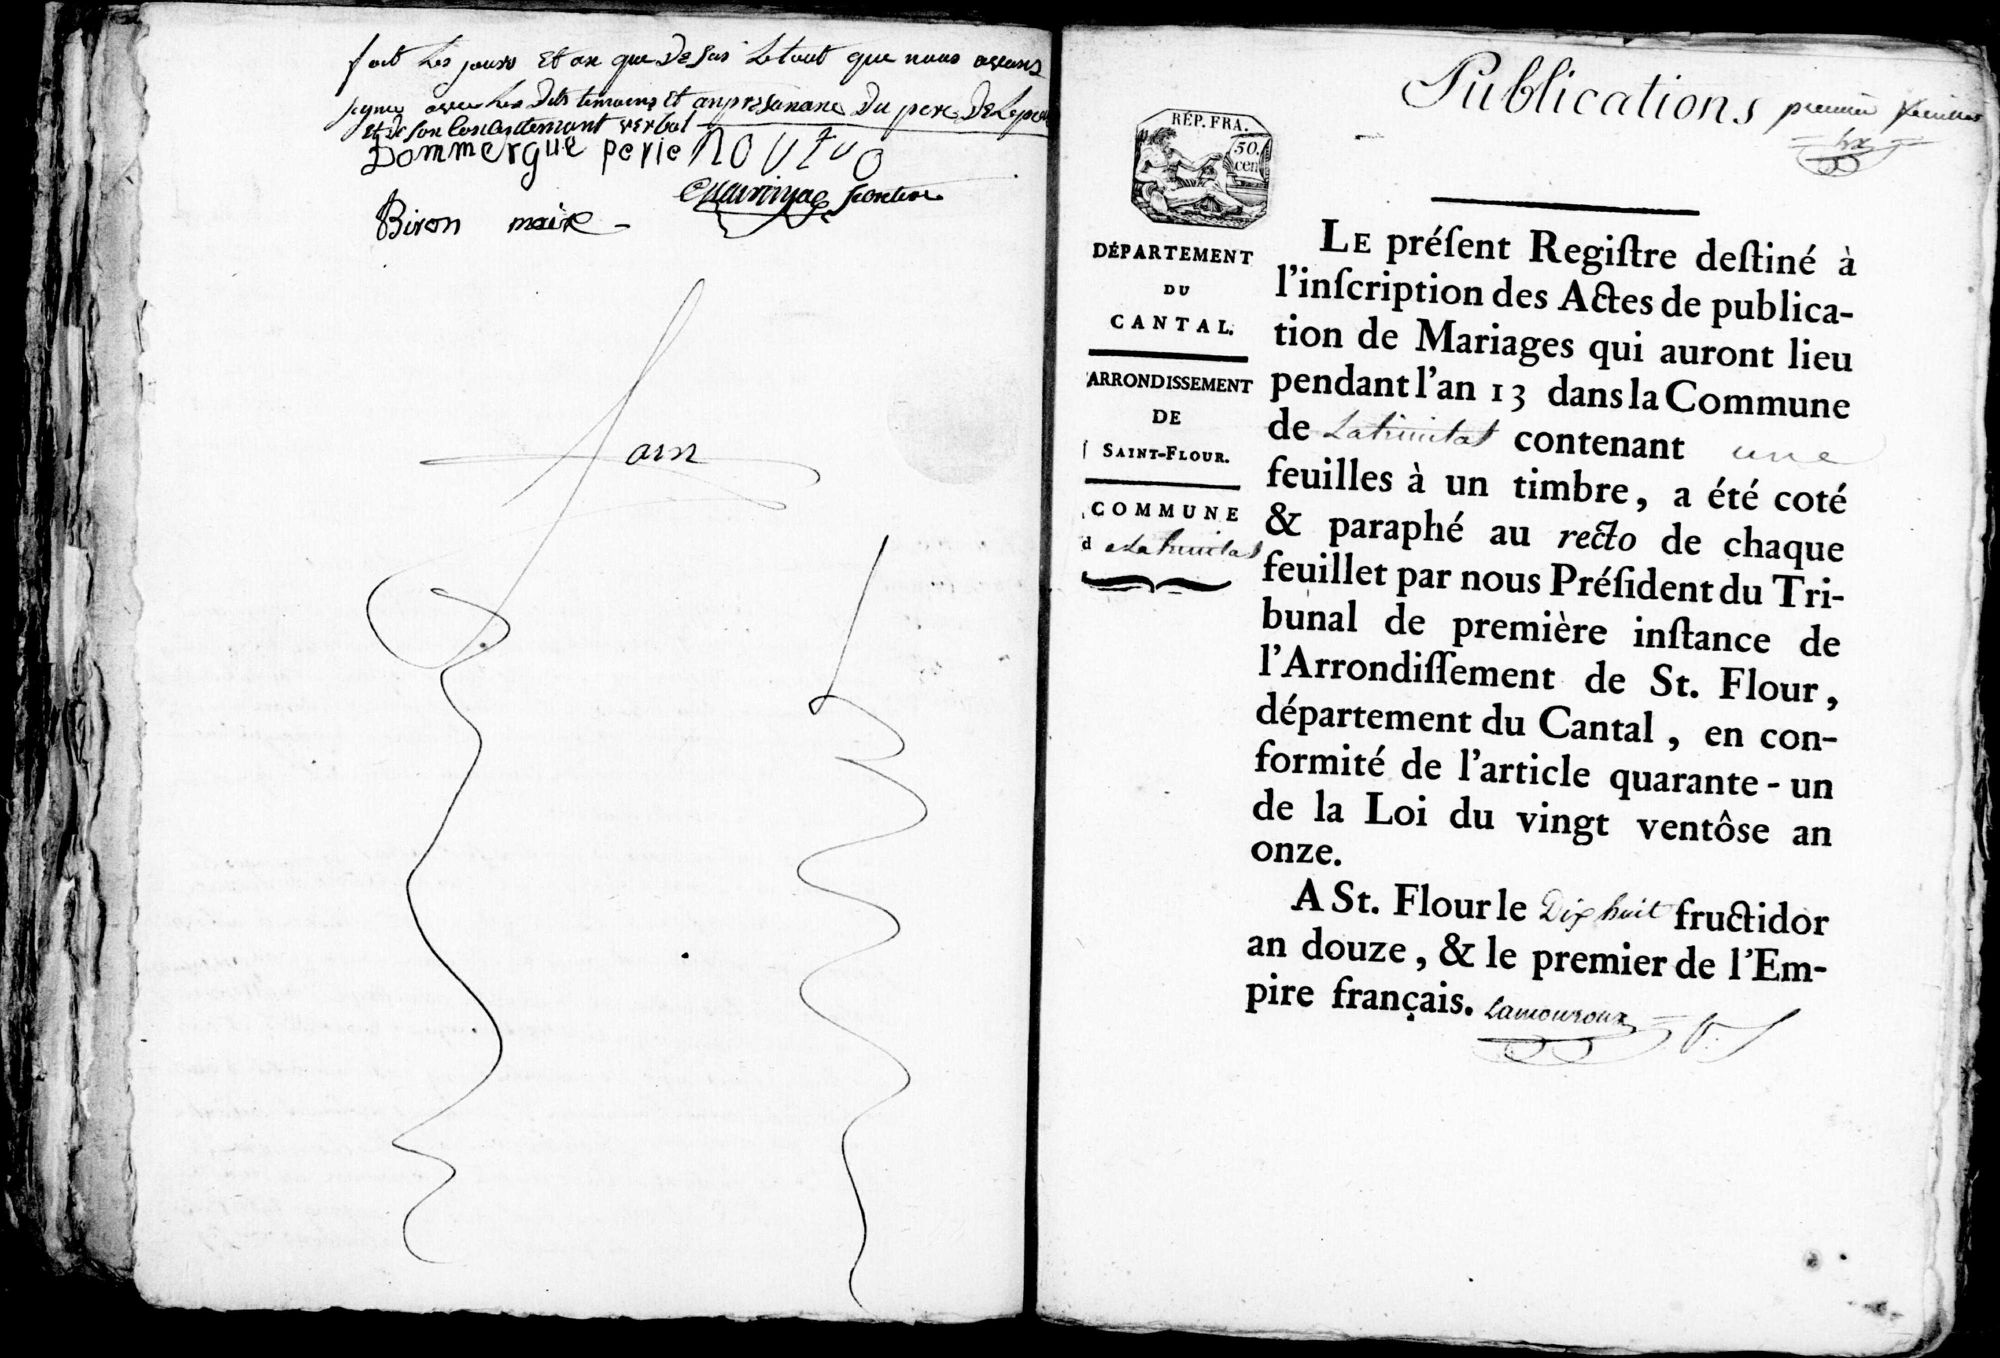 fait les jours et an que desus le tout que nous avons
signes avec les dits temoins et anpresanane du pere de Lepou
et de son consentemant verbal
Dommergue perie
Biron maire
fain
Publications premier feuillet
RÉP. FRA.
50.
cen
DÉPARTEMENT
DU
CANTAL.
ARRONDISSEMENT
DE
SAINT-FLOUR.
COMMUNE
d e Latrinitat
LE préſent Regiſtre deſtiné à
l'inſcription des Actes de publica-
tion de Mariages qui auront lieu
pendant l'an 13 dans la Commune
de Latrinitat contenant une
feuilles à un timbre, a été coté
& paraphé au recto de chaque
feuillet par nous Préſident du Tri-
bunal de première inſtance de
l'Arrondiſſement de St. Flour,
département du Cantal, en con-
formité de l'article quarante-un
de la Loi du vingt ventôse an
onze.
A St. Flour le Dix huit fructidor
an douze, & le premier de l'Em-
pire français. Lamouroux